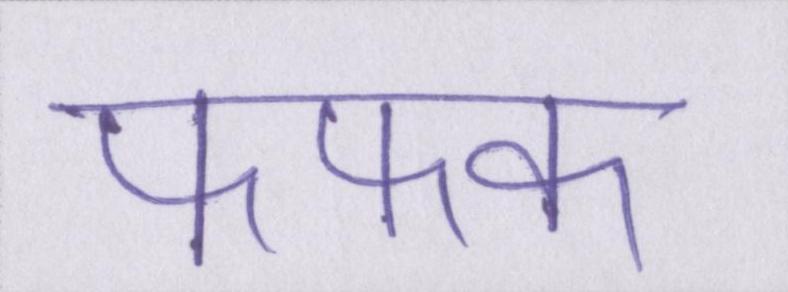 फफक